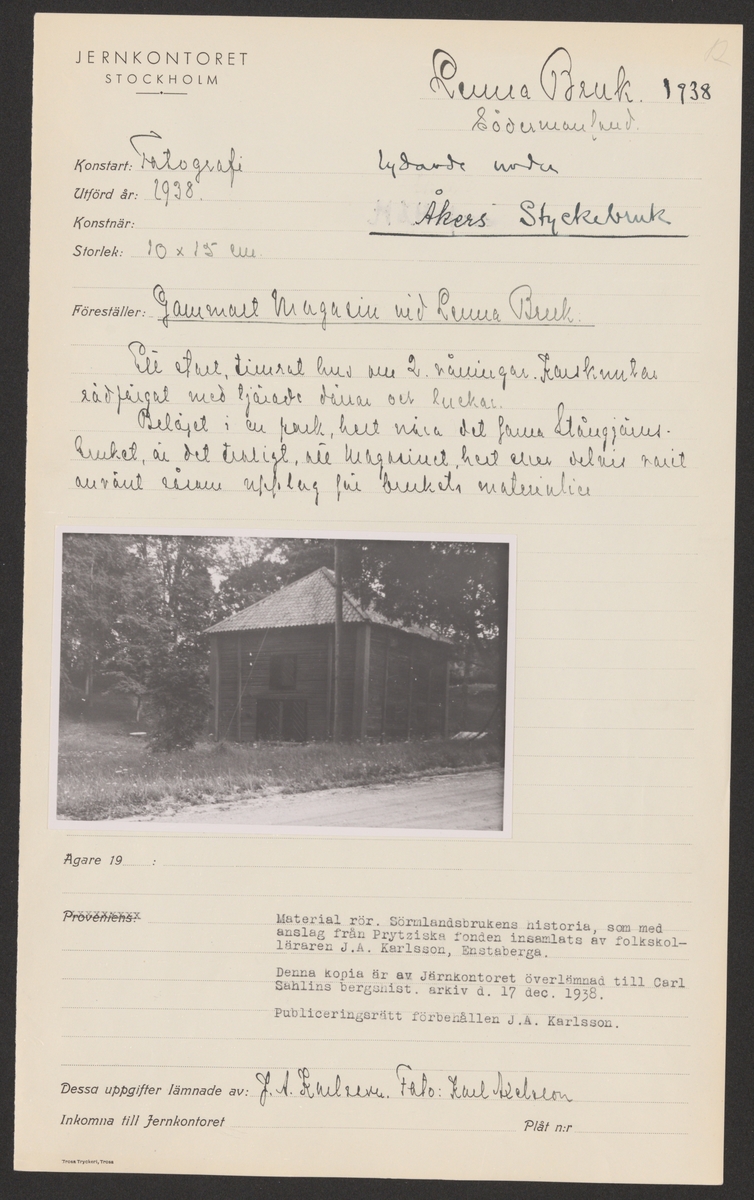 12
JERNKONTORET
STOCKHOLM
Lenna Bruk. 1938
Södermanland.
Konstart: Fotografi
lydande under
Utförd år: 1938.
Åkers Styckebruk
Konstnär:
Storlek: 10 x 15 cm.
Föreställer: Gammalt Magasin vid Lenna Bruk.
Ett stort, timrat hus om 2. våningar. Korsknutar
rödfärgat med tjärade dörrar och luckor.
Beläget i en park, helt nära det forna Stångjärns-
bruket, är det troligt, att Magasinet, helt eller delvis varit
använt såsom upplag för brukets materialier
Ägare 19 :
Proveniens:
Material rör. Sörmlandsbrukens historia, som med
anslag från Prytziska fonden insamlats av folkskol-
läraren J.A. Karlsson, Enstaberga.
Denna kopia är av Järnkontoret överlämnad till Carl
Sahlins bergshist. arkiv d. 17 dec. 1938.
Publiceringsrätt förbehållen J.A. Karlsson.
Dessa uppgifter lämnade av: J. A. Karlsson. Foto: Karl Axelsson
Inkomna till Jernkontoret
Plåt n:r
Trosa Tryckeri, Trosa